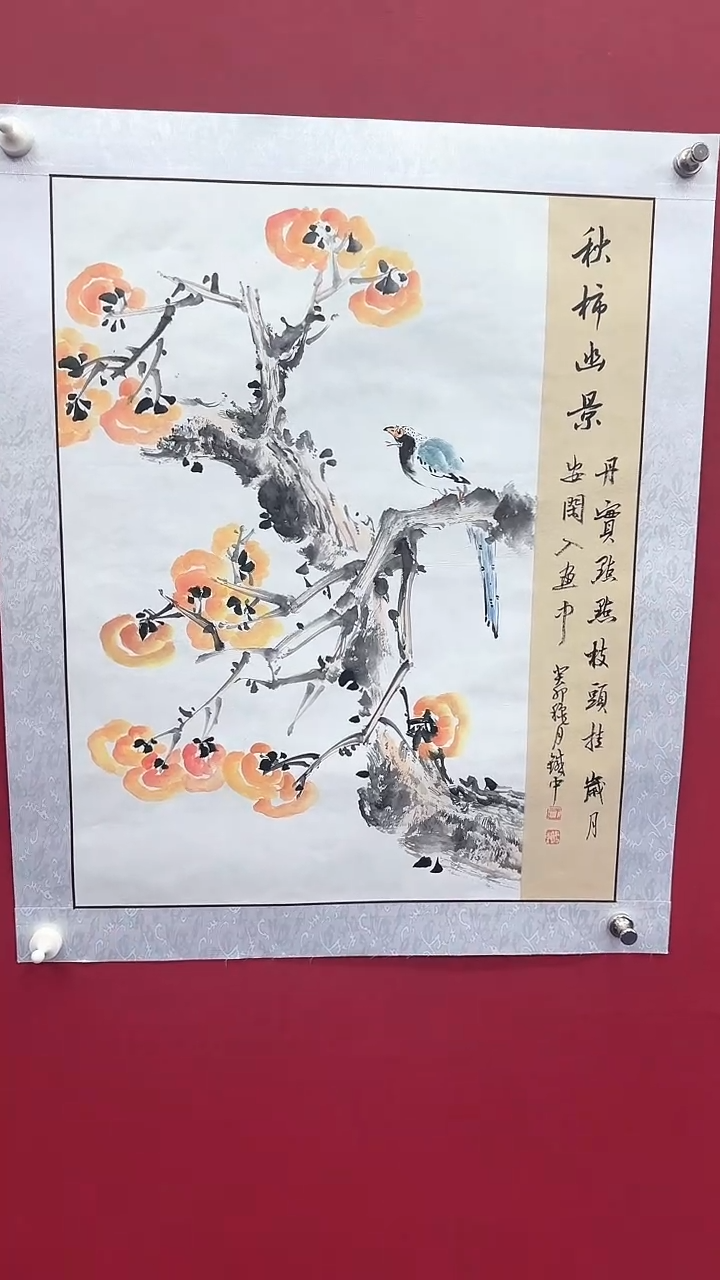 秋柿幽景
丹實點點枝頭挂 歲月
安閑入畫中
癸卯 月 中